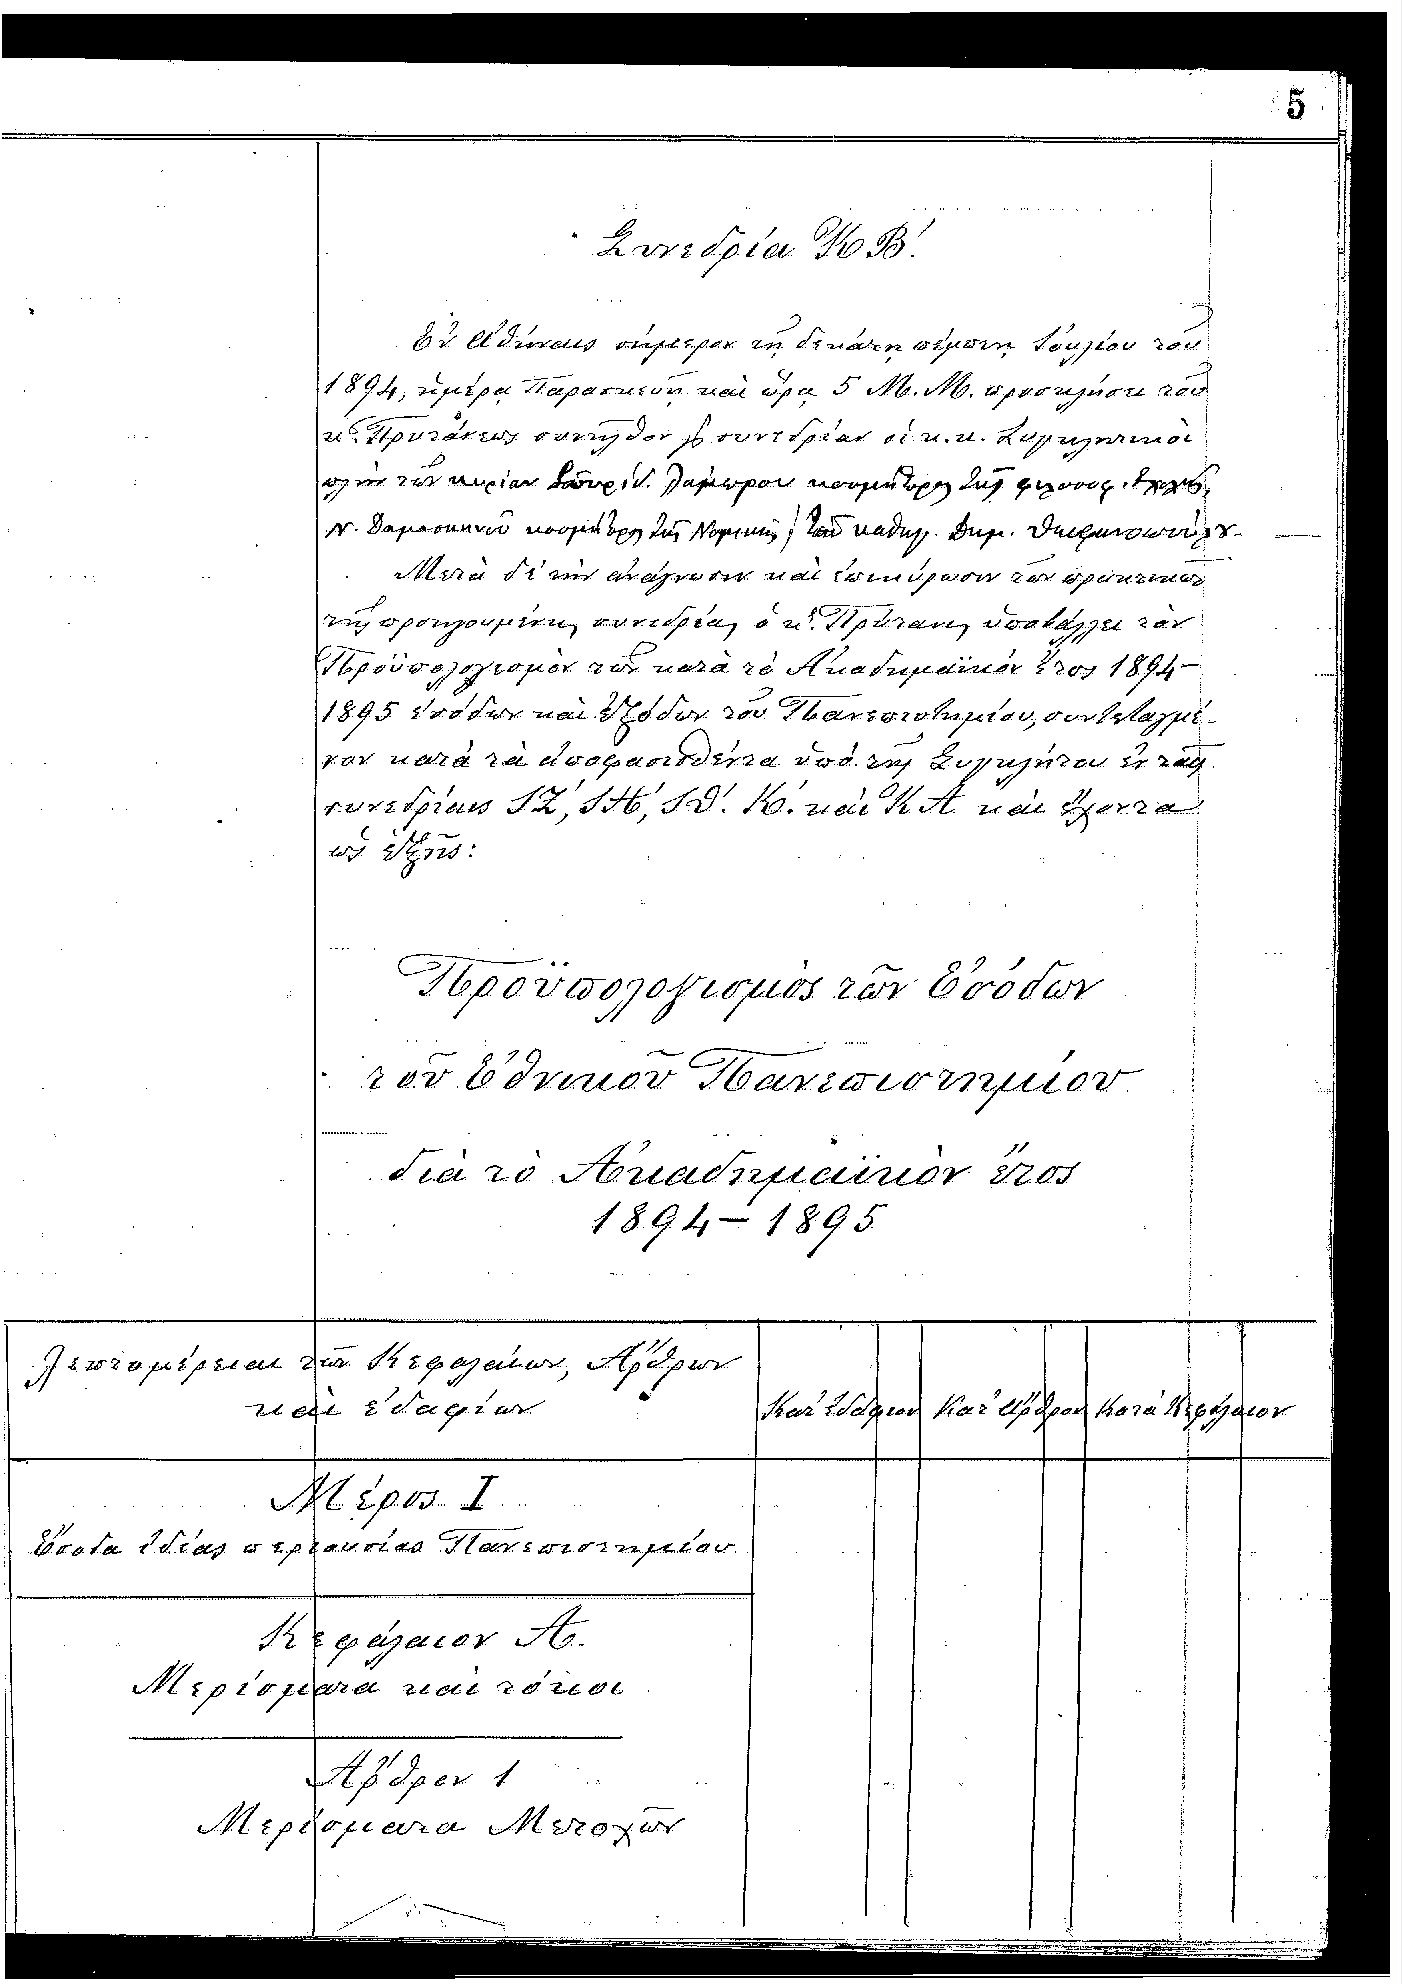 5
Συνεδρία ΚΒ'.
Ἐν Ἀθήναις σήμερον τῇ δεκάτῃ πέμπτῃ Ἰουλίου τοῦ
1894, ἡμέρᾳ Παρασκευῇ καὶ ὥρᾳ 5 Μ. Μ. προσκλήσει τοῦ
κ. Πρυτάνεως συνῆλθον εἰς συνεδρίαν οἱ κ.κ. Συγκλητικοὶ
πλὴν τῶν κυρίων Σπυρίδ. Λάμπρου κοσμήτορος τῆς φιλοσοφ. Σχολῆς,
Ν. Δαμασκηνοῦ κοσμήτορος τῆς Νομικῆς, τοῦ καθηγ. Δημ.
Μετὰ δὲ τὴν ἀνάγνωσιν καὶ ἐπικύρωσιν τῶν πρακτικῶν
τῆς προηγουμένης συνεδρίας ὁ κ. Πρύτανις ὑποβάλλει τὸν
Προϋπολογισμὸν τῶν κατὰ τὸ Ἀκαδημαϊκὸν ἔτος 1894–
1895 ἐσόδων καὶ ἐξόδων τοῦ Πανεπιστημίου, συντεταγμέ-
νον κατὰ τὰ ἀποφασισθέντα ὑπὸ τῆς Συγκλήτου ἐν ταῖς
συνεδρίαις ΙΖ', ΙΗ', ΙΘ'. Κ'. καὶ ΚΑ καὶ ἔχοντα
ὡς ἑξῆς:
Προϋπολογισμὸς τῶν Ἐσόδων
τοῦ Ἐθνικοῦ Πανεπιστημίου
διὰ τὸ Ἀκαδημαϊκὸν ἔτος
1894 – 1895
Λεπτομέρειαι τῶν Κεφαλαίων, Ἄρθρων
καὶ ἐδαφίων
Κατ' ἐδάφιον Κατ' ἄρθρον Κατὰ Κεφάλαιον
Μέρος I
Ἔσοδα ἰδίας περιουσίας Πανεπιστημίου
Κεφάλαιον Α.
Μερίσματα καὶ τόκοι
Ἄρθρον 1
Μερίσματα Μετοχῶν